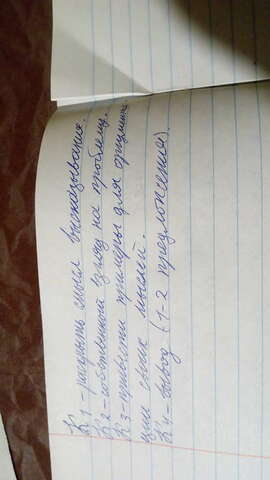 К 1 - раскрыть смысл высказывания.
К 2 - собственный взгляд на проблему.
К 3 - привести примеры для аргумента
ции своих мыслей.
К 4 - вывод (1-2 предложения).